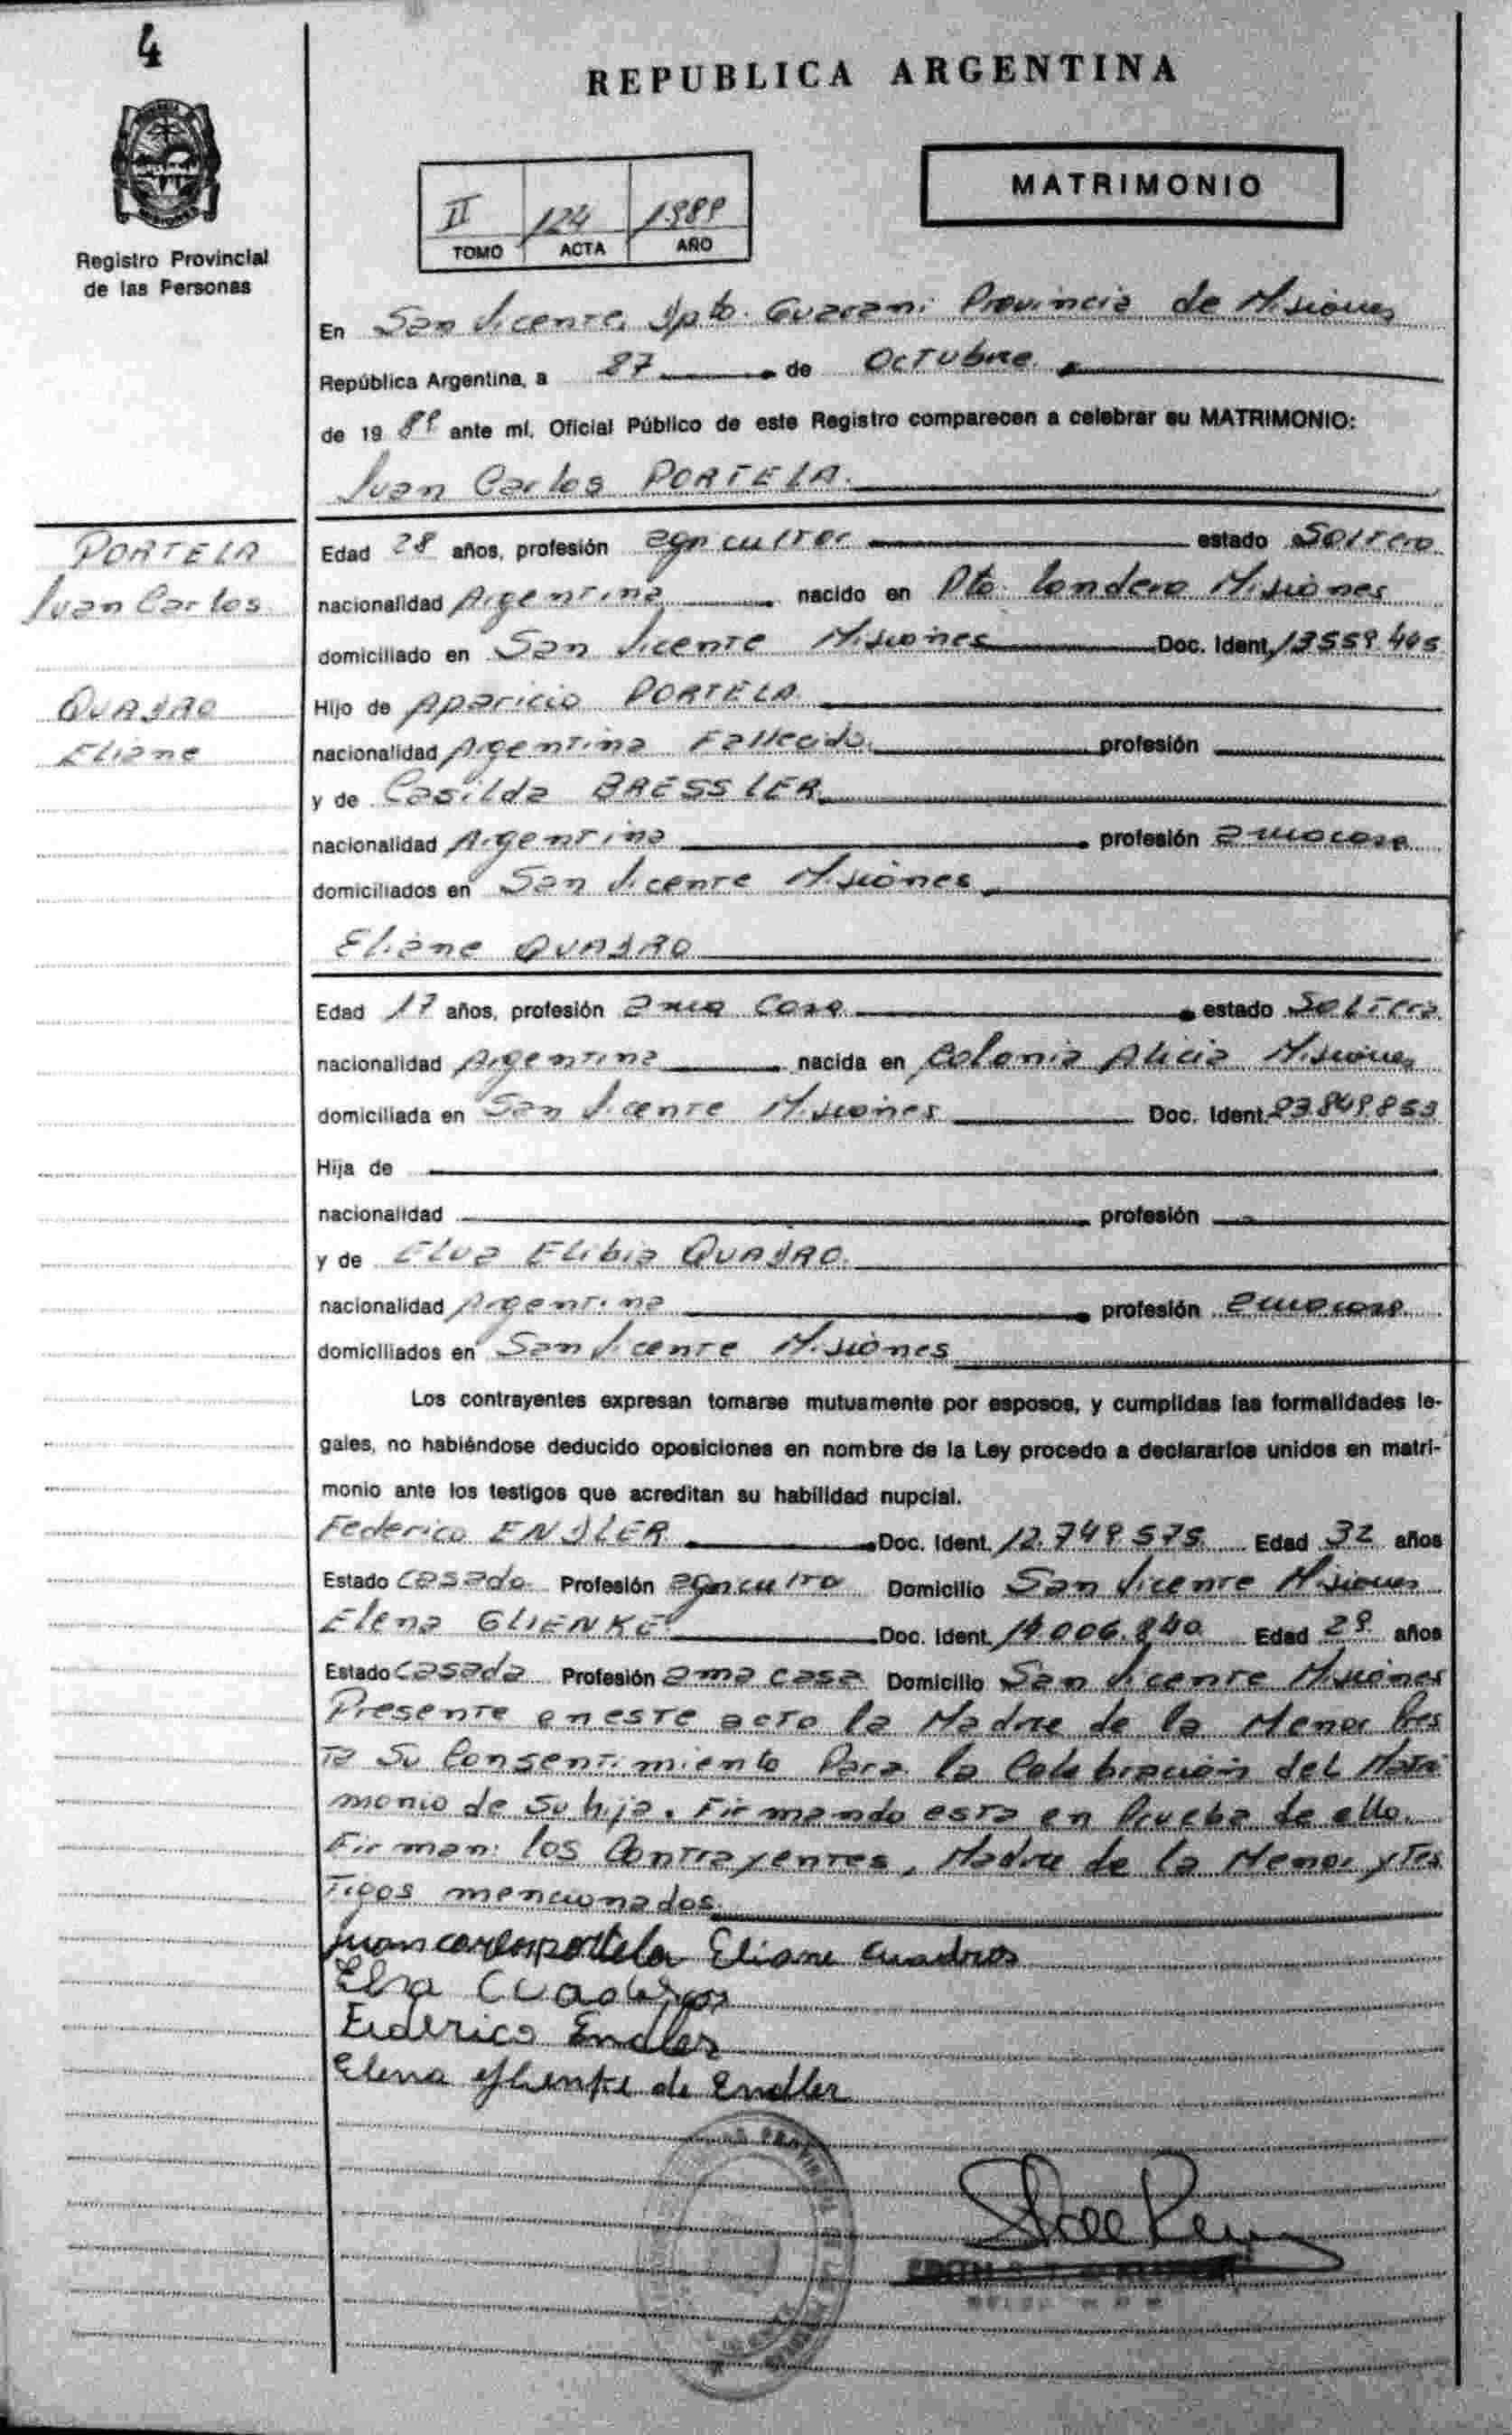 4
REPUBLICA ARGENTINA
MATRIMONIO
II 124 1989
TOMO ACTA AÑO
Registro Provincial
de las Personas
En San Vicente, Dpto. Guarani Provincia de Misiones
República Argentina, a 27 de Octubre
de 19 89 ante mí, Oficial Público de este Registro comparecen a celebrar su MATRIMONIO:
Juan Carlos PORTELA
PORTELA
Juan Carlos
QUADRO
Eliane
Edad 28 años, profesión agricultor estado Soltero
nacionalidad Argentina nacido en Pto. Londero Misiones
domiciliado en San Vicente Misiones Doc. Ident. 13559.445
Hijo de Aparicio PORTELA
nacionalidad Argentina Fallecido profesión
y de Casilda BRESSLER
nacionalidad Argentina profesión ama casa
domiciliados en San Vicente Misiones
Eliane QUADRO
Edad 17 años, profesión ama casa estado Soltera
nacionalidad Argentina nacida en Colonia Alicia Misiones
domiciliada en San Vicente Misiones Doc. Ident. 23.849.853
Hija de
nacionalidad profesión
y de Elva Elibia QUADRO
nacionalidad Argentina profesión ama casa
domiciliados en San Vicente Misiones
Los contrayentes expresan tomarse mutuamente por esposos, y cumplidas las formalidades le-
gales, no habiéndose deducido oposiciones en nombre de la Ley procedo a declararlos unidos en matri-
monio ante los testigos que acreditan su habilidad nupcial.
Federico ENDLER Doc. Ident. 12.749.575 Edad 32 años
Estado Casado Profesión agricultor Domicilio San Vicente Misiones
Elena GLIENKE Doc. Ident. 14.006.840 Edad 29 años
Estado Casada Profesión ama casa Domicilio San Vicente Misiones
Presente en este acto la Madre de la Menor Pres
ta Su Consentimiento Para la Celebración del Matri
monio de su hija. Firmando esta en Prueba de ello.
Firman: los Contrayentes, Madre de la Menor y Tes
tigos mencionados
Juan carlos portela Eliane cuadros
Elva Cuadros
Federico Endler
Elena Glienke de Endler